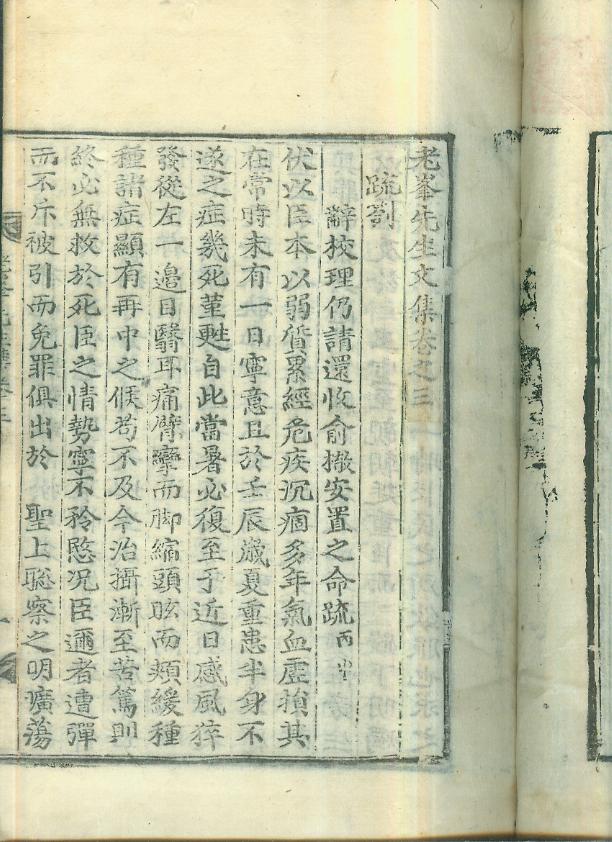 老峯先生文集卷之三
疏劄
辭校理仍請還收俞㯙安置之命疏 丙申
伏以臣本以弱質累經危疾沉痼多年氣血虛損其
在常時未有一日寧意且於壬辰歲夏重患半身不
遂之症幾死菫甦自此當暑必復至于近日感風猝
發從左一邉目翳耳痛臂攣而脚縮頭眩而頰緩種
種諸症顯有再中之候若不及今治攝漸至苦篤則
終必無救於死臣之情勢寧不矜愍况臣邇者遭彈
而不斥被引而免罪俱出於 聖上聡察之明曠蕩
老峯先生集卷三